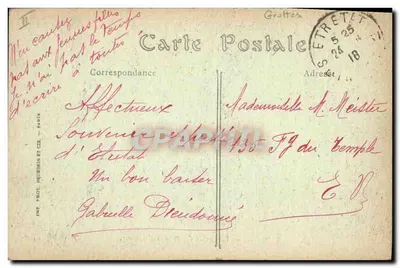 II
Grottes
Un cause
pas aux jeunes filles
je n'ai pas le temps
d'écrire à toutes
Carte Postale
Correspondance
Adresse
ETRETAT
5 25
24 18
Affectueux
Souvenir
d'Etretat
Un bon baiser
Gabrielle Dieudonné
Mademoiselle M. Meister
Fg du Temple
E. V.